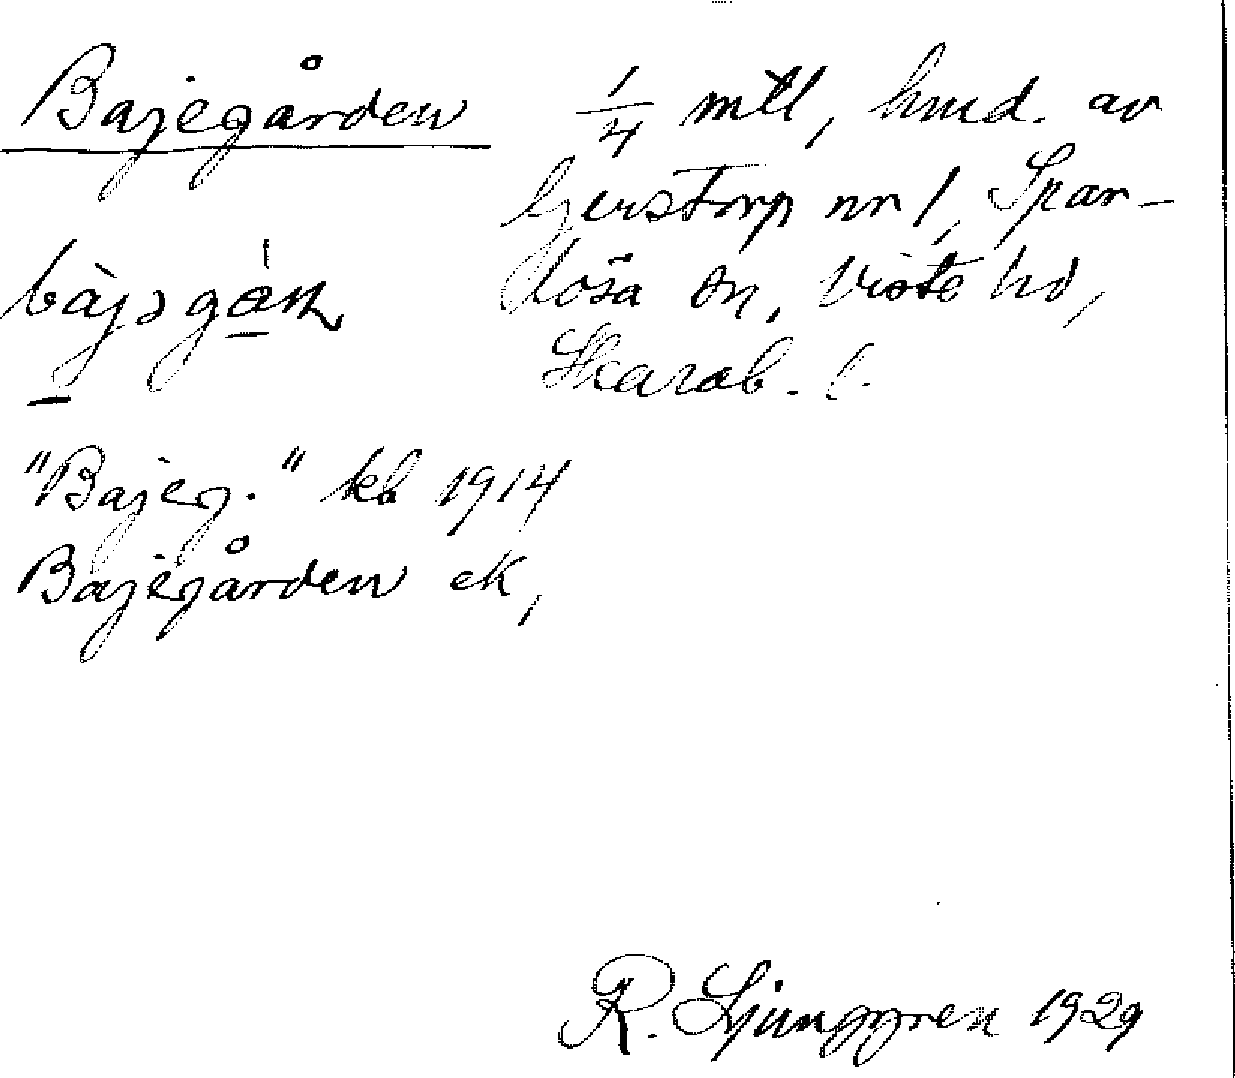 Bajegården 1/4 mtl, hmd. av
Gerstorp nr 1, Spar-
lösa sn, Viste hd,
Skarab. l.
"Bajeg." kb 1914
Bajegården ek,
R. Ljunggren 1929